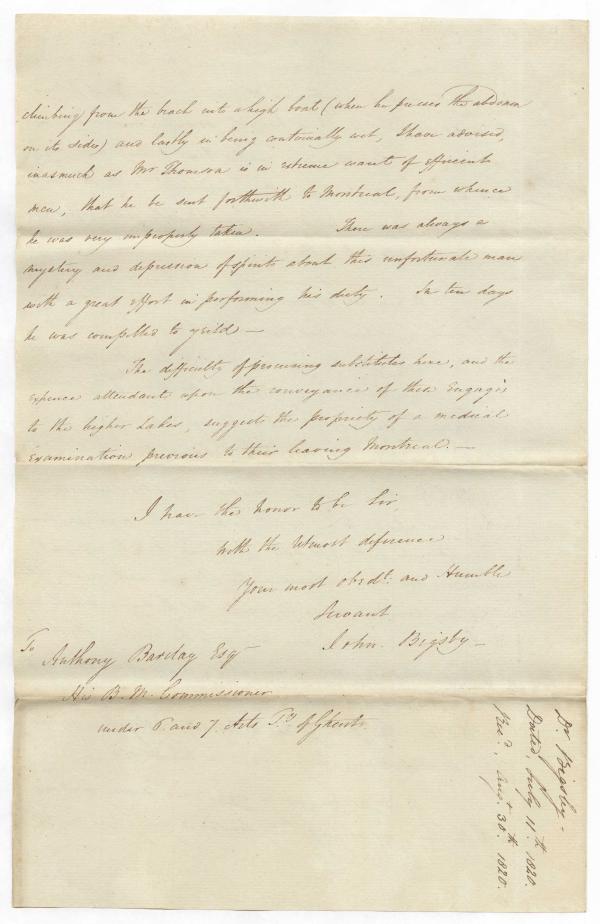 climbing from the beach into a high boat (when he presses the abdomen
on its sides) and lastly in being continually wet, I have advised,
inasmuch as Mr Thomson is in extreme want of efficient
men, that he be sent forthwith to Montreal, from whence
he was very improperly taken. There was always a
mystery and depression of spirits about this unfortunate man
with a great effort in performing his duty. In ten days
he was compelled to yeild —
The difficulty of procuring substitutes here, and the
expence attendant upon the conveyance of these Engagés
to the higher Lakes, suggest the propriety of a medical
examination previous to their leaving Montreal. —
I have the honor to be Sir,
with the utmost deference
Your most obedt. and Humble
Servant
John. Bigsby —
To
Anthony Barclay Esqr
His B. M. Commissioner
under 6. and 7. Arts Ty. of Ghent.
Dr. Bigsby -
Dated, July 11th 1820.
Recd., Augt. 30th. 1820.